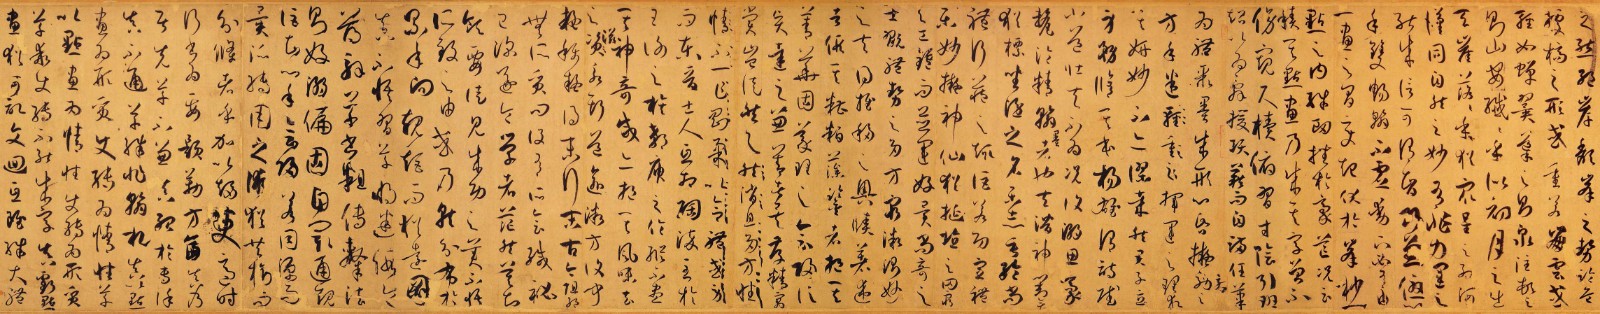 之態絕岸頹峯之勢臨危
據槁之形或重若崩雲或
輕如蟬翼導之則泉注頓之
則山安纖纖乎似初月之出
天崖落落乎猶衆星之列河
漢同自然之妙有非力運之
能成信可謂智巧兼優心
手雙暢翰不虛動下必有由
一畫之間變起伏於峯杪
一點之內殊衄挫於豪芒況云
積其點畫乃成其字曾不
傍窺尺牘俯習寸陰引班
超以為辭援項籍而自滿任筆
為體聚墨成形心昏擬効之
方手迷揮運之理求
其妍妙不亦謬哉然君子立
身務脩其本楊雄謂詩賦
小道壯夫不為況復溺思豪
氂淪精翰墨者也夫潛神對奕
猶標坐隱之名樂志垂綸尚
體行藏之趣詎若功宣禮
樂妙擬神仙猶埏埴之罔窮
與工鑪而並運好異尚奇之
士翫體勢之多方窮微測妙
之夫得推移之奧賾著述
者假其糟粕藻鑒者挹其
菁華固義理之會歸信
賢達之兼善者矣存精寓
賞豈徒然與
而東晉士人互相陶淬至於
王謝之族郗庾之倫縱不盡
其神奇咸亦挹其風味去
之滋永斯道逾微方復聞
疑稱疑得末行末古今阻絕
無所質問設有所會緘祕
已深遂令學者茫然莫知
領要徒見成功之美不悟
所致之由或乃就分布於
累年向規矩而猶遠圖
真不悟習草將迷假令
薄解草書粗傳隸法
則好溺偏固自閡通規
詎知心手會歸若同源而
異派轉用之術猶共樹而
分條者乎加以趨變適時
行書為要題勒方畐真乃
居先草不兼真殆於專謹
真不通草殊非翰札真以點
畫為形質使轉為情性草
以點畫為情性使轉為形質
草乖使轉不能成字真虧點
畫猶可記文迴互雖殊大體